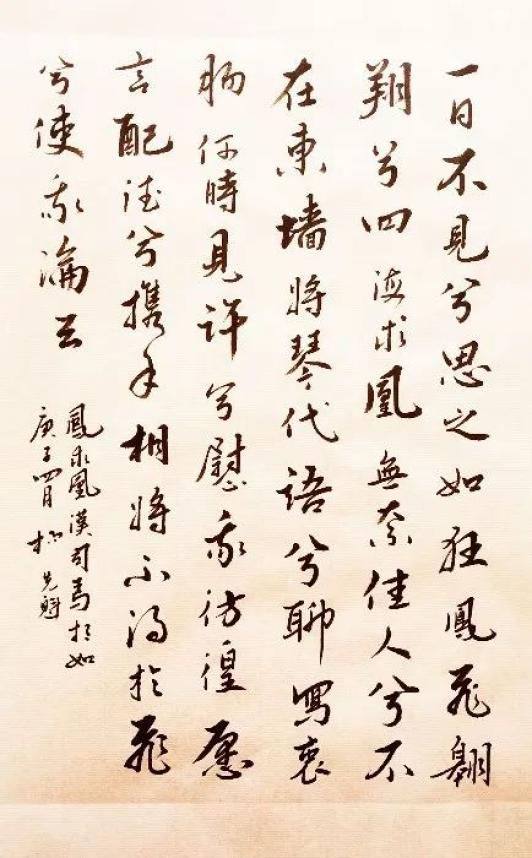 一日不見兮思之如狂鳳飛翱
翔兮四海求凰無奈佳人兮不
在東墙將琴代語兮聊寫衷
腸何時見許兮慰我彷徨愿
言配德兮携手相將不得於飛
兮使我淪亡
鳳求凰漢司馬相如
庚子四月